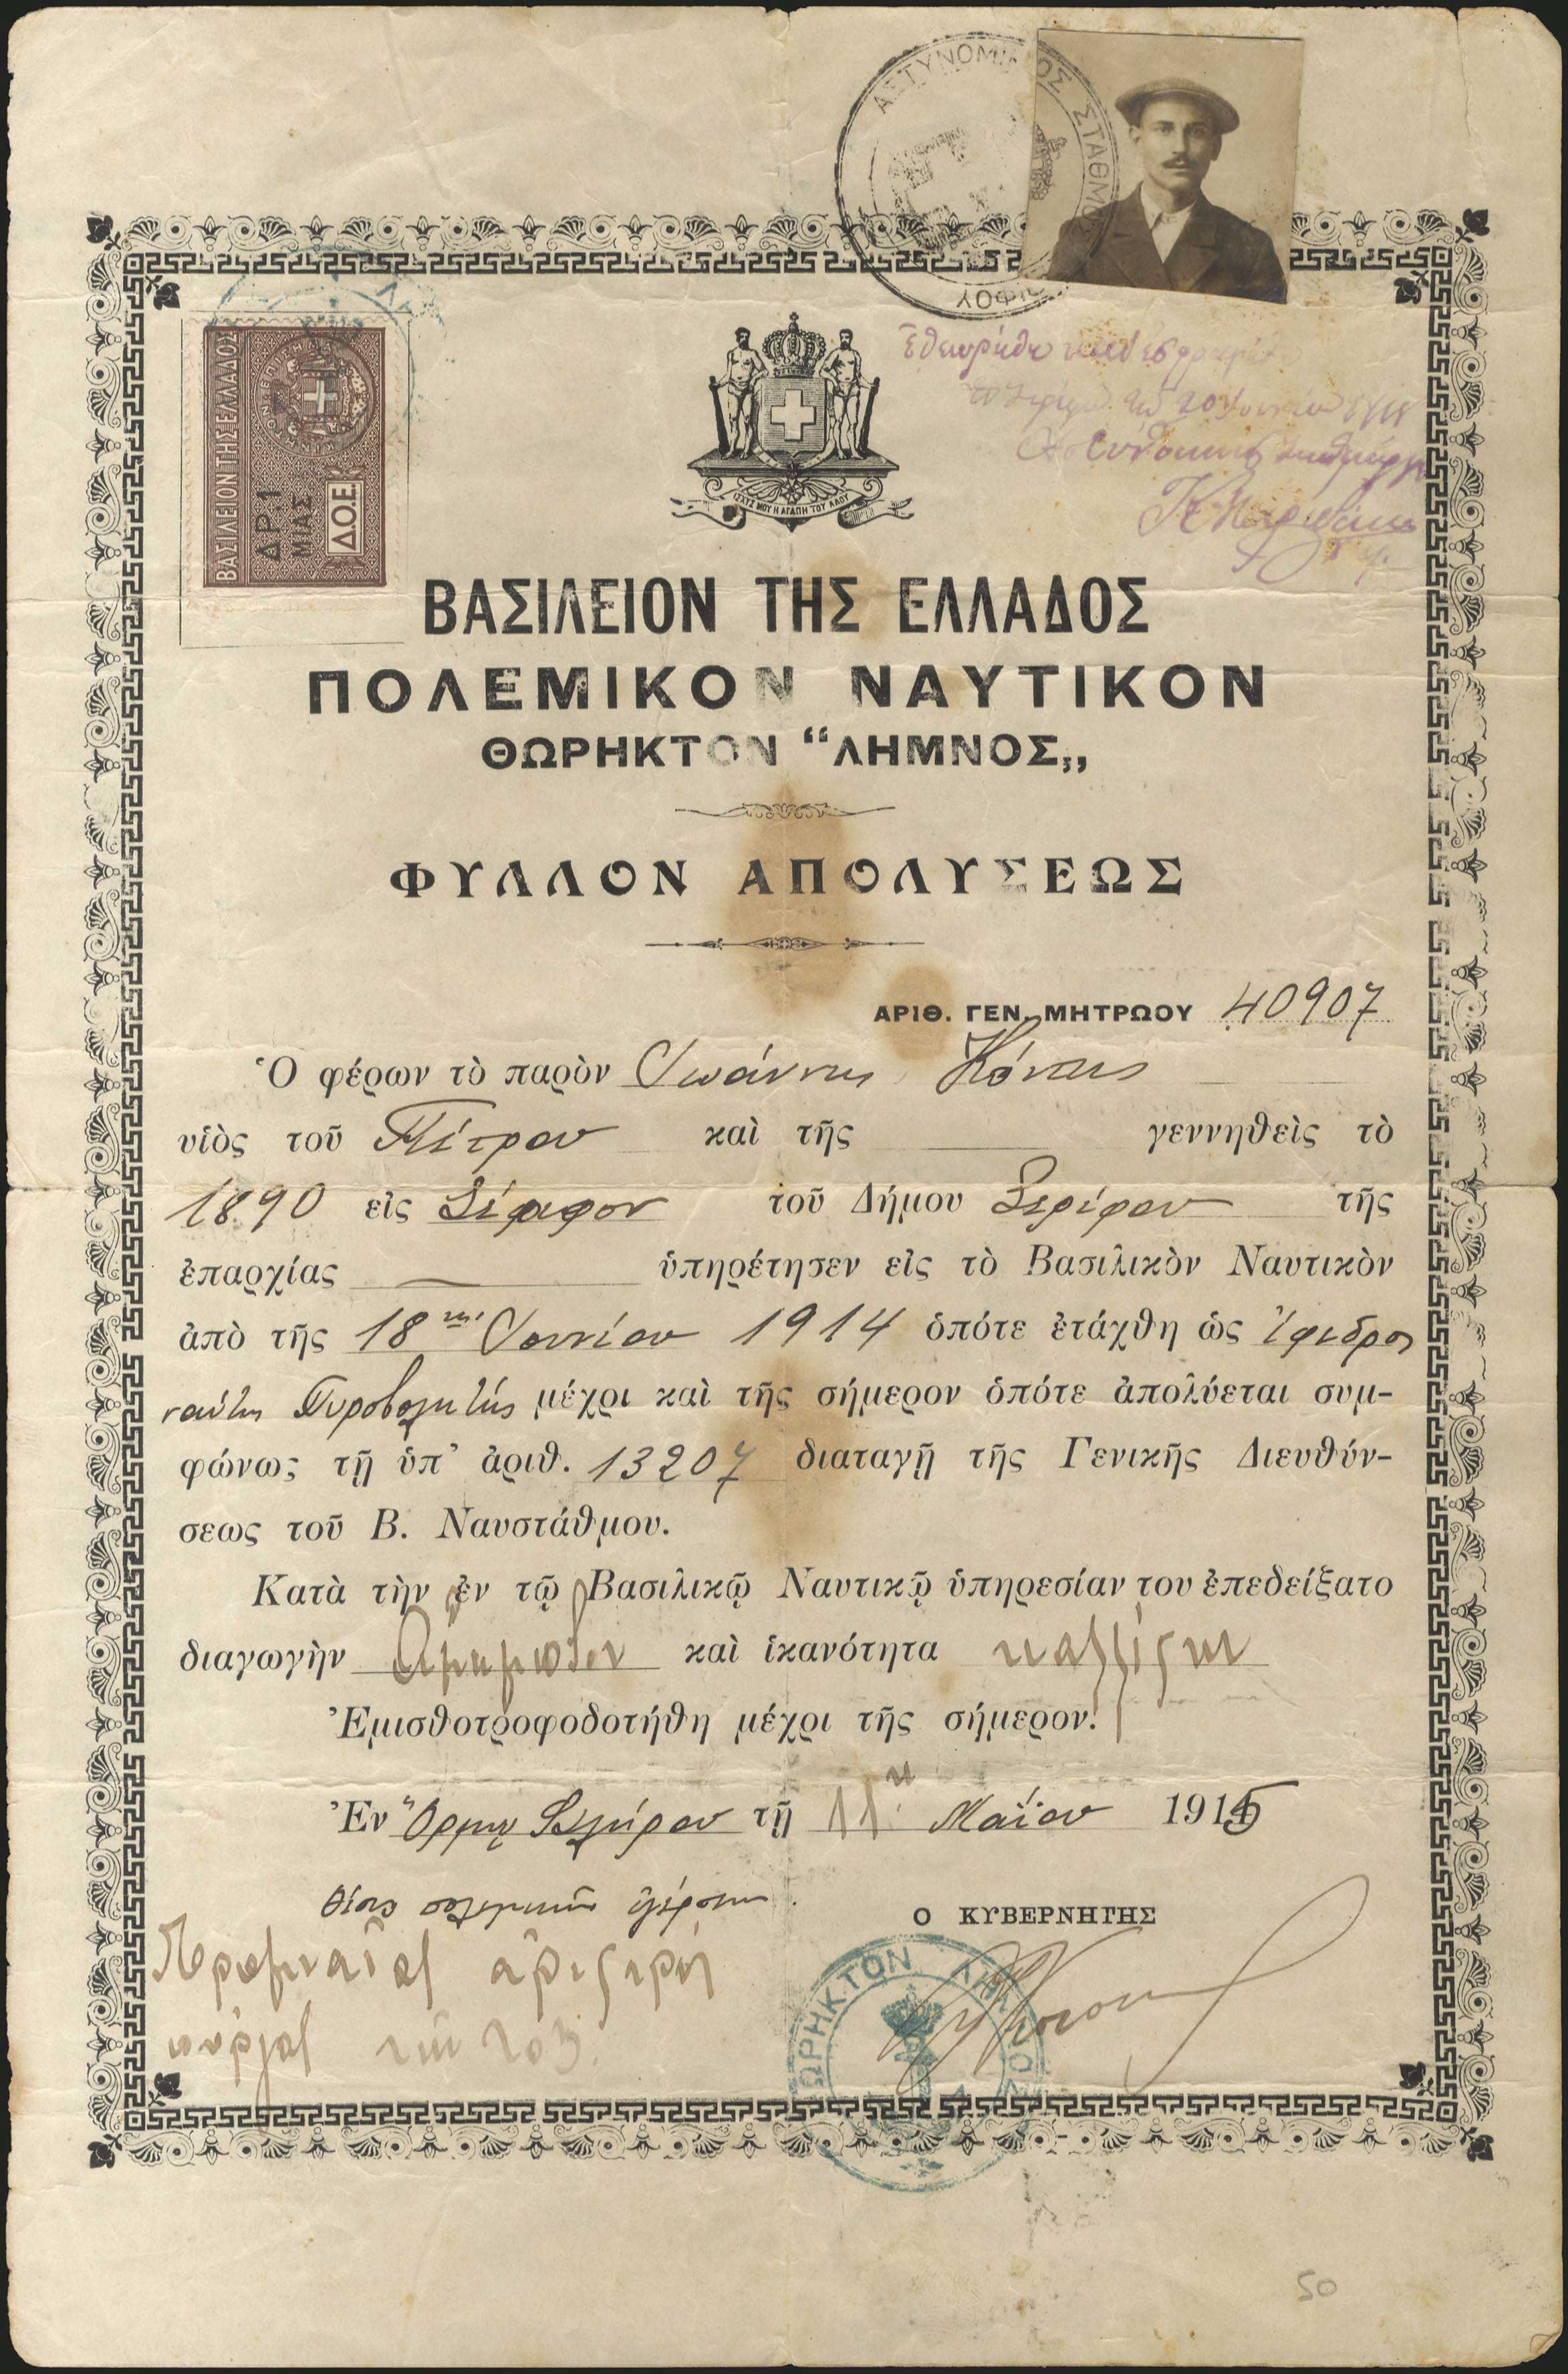 ΑΣΤΥΝΟΜΙΚΟΣ ΣΤΑΘΜΟΣ
ΒΑΣΙΛΕΙΟΝ ΤΗΣ ΕΛΛΑΔΟΣ
ΔΡ. 1
ΜΙΑΣ
Δ.Ο.Ε.
ΙΣΧΥΣ ΜΟΥ Η ΑΓΑΠΗ ΤΟΥ ΛΑΟΥ
ΒΑΣΙΛΕΙΟΝ ΤΗΣ ΕΛΛΑΔΟΣ
ΠΟΛΕΜΙΚΟΝ ΝΑΥΤΙΚΟΝ
ΘΩΡΗΚΤΟΝ “ΛΗΜΝΟΣ„
ΦΥΛΛΟΝ ΑΠΟΛΥΣΕΩΣ
ΑΡΙΘ. ΓΕΝ. ΜΗΤΡΩΟΥ 40907
Ὁ φέρων τὸ παρὸν Ἰωάννης
υἱὸς τοῦ Πέτρου καὶ τῆς γεννηθεὶς τὸ
1890 εἰς Σέριφον τοῦ Δήμου Σερίφου τῆς
ἐπαρχίας ὑπηρέτησεν εἰς τὸ Βασιλικὸν Ναυτικὸν
ἀπὸ τῆς 18ης Ἰουνίου 1914 ὁπότε ἐτάχθη ὡς ἔφεδρος
ναύτης Πυροβολητὴς μέχρι καὶ τῆς σήμερον ὁπότε ἀπολύεται συμ-
φώνως τῇ ὑπ’ ἀριθ. 13207 διαταγῇ τῆς Γενικῆς Διευθύν-
σεως τοῦ Β. Ναυστάθμου.
Κατὰ τὴν ἐν τῷ Βασιλικῷ Ναυτικῷ ὑπηρεσίαν του ἐπεδείξατο
διαγωγὴν ἄμεμπτον καὶ ἱκανότητα καλλίστην
Ἐμισθοτροφοδοτήθη μέχρι τῆς σήμερον.
Ἐν Ὅρμῳ Φαλήρου τῇ 11ῃ Μαΐου 1915
Ο ΚΥΒΕΡΝΗΤΗΣ
ΘΩΡΗΚΤΟΝ ΛΗΜΝΟΣ
50